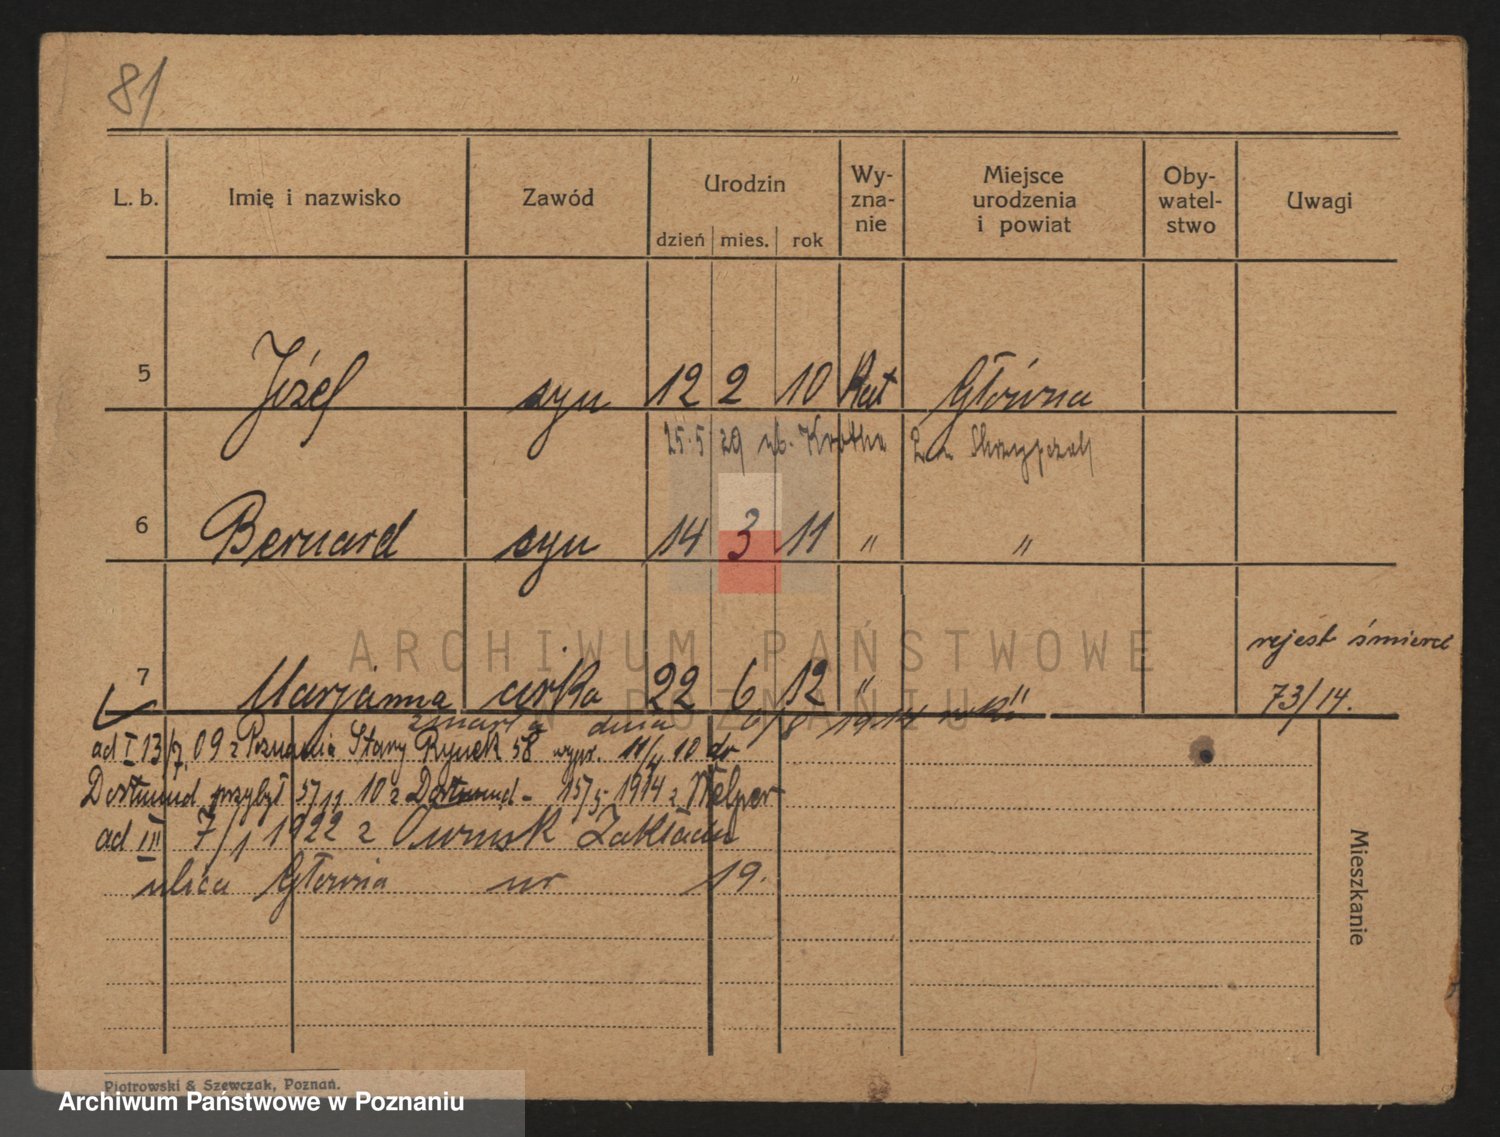 81
L. b. Imię i nazwisko Zawód Urodzin dzień mies. rok Wy-zna-nie Miejsce urodzenia i powiat Oby-watel-stwo Uwagi
5 Józef syn 12 2 10 Kat Główna
25.5 29 Krotka Skrzypczak
6 Bernard syn 14 3 11 " "
rejest śmierci
7 Marjanna córka 22 6 12 " " 73/14.
zmarła dnia 6/8 1914 roku
ad I 13/7. 09 z Poznania Stary Rynek 58 wypr. 10 do
Dortmund przybył 10 z Dortmund - 15/5 1914 z
ad III 7/1 1922 z Owinsk Zakładu
ulica Główna nr 19.
Mieszkanie
Piotrowski & Szewczak, Poznań.
ARCHIWUM PAŃSTWOWE
W POZNANIU
Archiwum Państwowe w Poznaniu